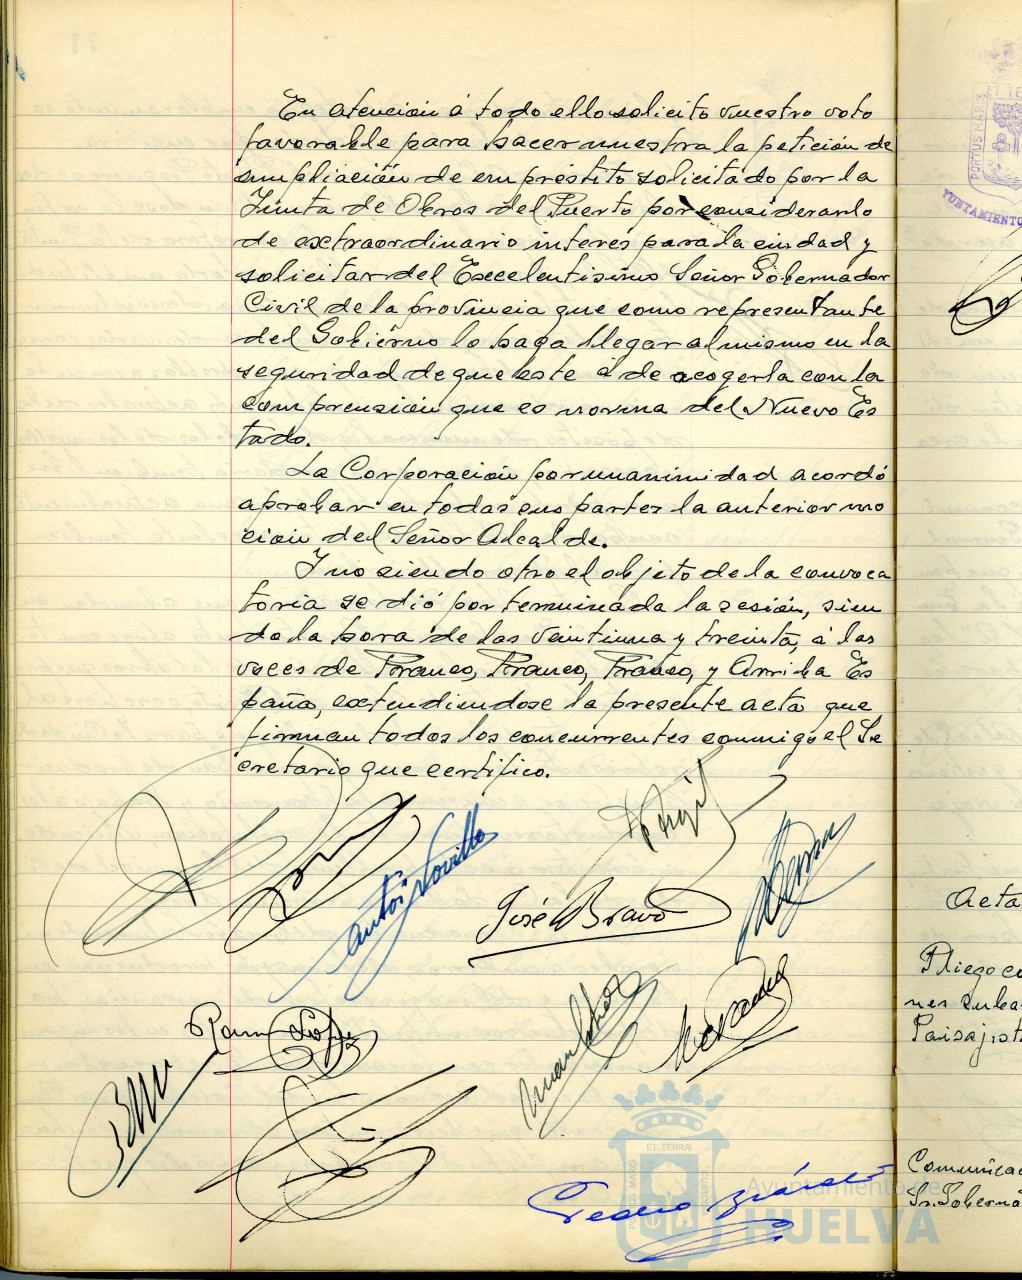 En atención á todo ello solicito vuestro voto
favorable para hacer nuestra la petición de
ampliación de empréstito solicitado por la
Junta de Obras del Puerto por considerarlo
de extraordinario interés para la ciudad y
solicitar del Excelentísimo Señor Gobernador
Civil de la provincia que como representante
del Gobierno lo haga llegar al mismo en la
seguridad de que este á de acogerla con la
comprensión que es norma del Nuevo Es
tado.
La Corporación por unanimidad acordó
aprobar en todas sus partes la anterior mo
ción del Señor Alcalde.
Y no siendo otro el objeto de la convoca
toria se dió por terminada la sesión, sien
do la hora de las veintiuna y treinta, á las
voces de Franco, Franco, Franco, y Arriba Es
paña, extendiendose la presente acta que
firman todos los concurrentes conmigo el Se
cretario que certifico.
José Bravo
Pedro
ET TERRÆ
PORTUS MARIS
Ayuntamiento de
HUELVA
PORTUS MARIS
ET TE
YUNTAMIENTO
Acta
Pliego co
Paisajist
Comunicac
Sr. Goberna